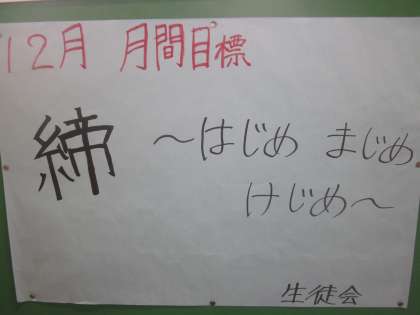 12月 月間目標
締 ～はじめ まじめ
けじめ～
生徒会